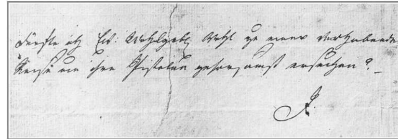 Dürfte ich Ew: Wohlgeb: wohl zu einer vorhabenden
Reise um ihre Pistolen gehorsamst ersuchen?
K.